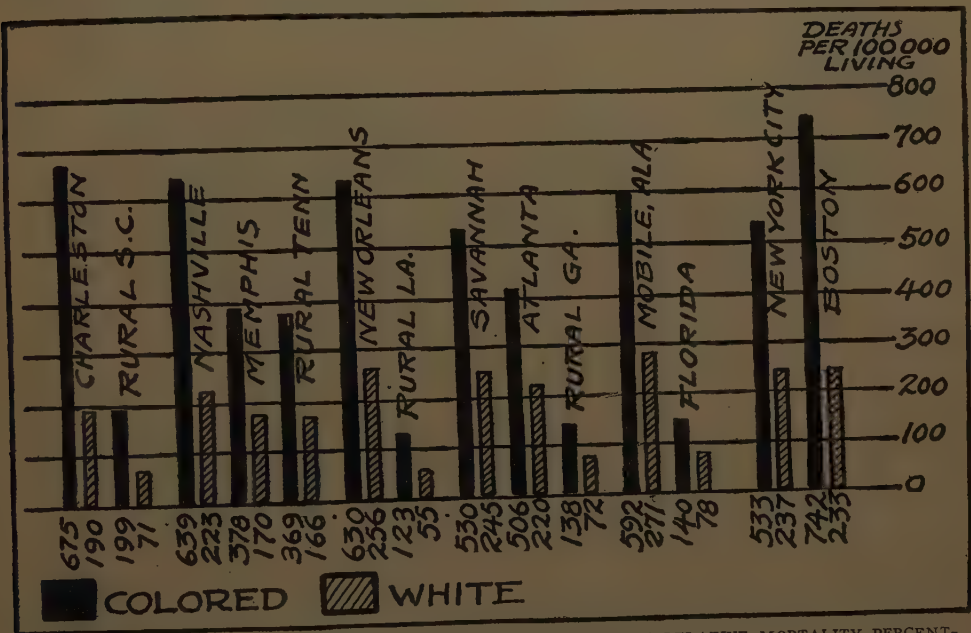 DEATHS
PER 100 000
LIVING
800
700
600
500
400
300
200
100
0
CHARLESTON
RURAL S.C.
NASHVILLE
MEMPHIS
RURAL TENN
NEW ORLEANS
RURAL LA.
SAVANNAH
ATLANTA
RURAL GA.
MOBILE, ALA
FLORIDA
NEW YORK CITY
BOSTON
675
190
199
71
639
223
378
170
369
166
630
256
123
55
530
245
506
220
138
72
592
271
140
78
533
237
742
233
COLORED WHITE
MORTALITY PERCENT-